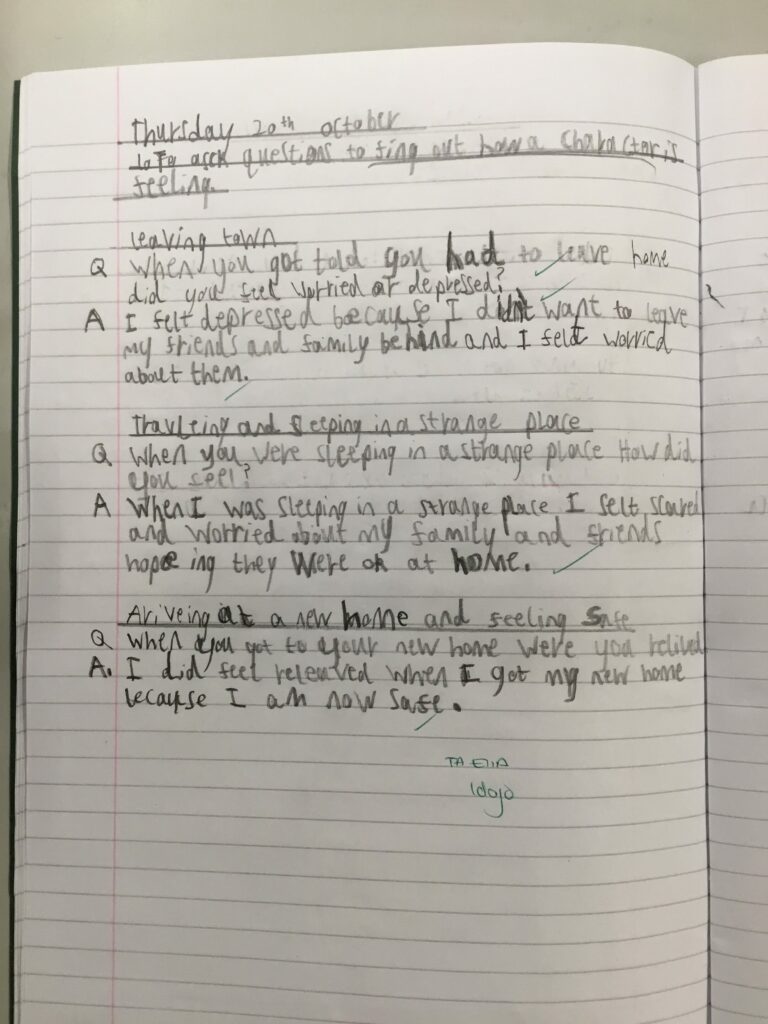 Thursday 20th October
to asck questions to fing out how a charactor is
feeling.
leaving town
Q When you got told you had to leave home
did you feel worried or depressed?
A I felt depressed because I didn't want to leave
my friends and family behind and I feld worried
about them.
Travleing and sleeping in a strange place
Q When you were sleeping in a strange place How did
you feel?
A When I was sleeping in a strange place I felt scared
and worried about my family and friends
hopeing they were ok at home.
Ariveing at a new home and feeling safe
Q when you got to your new home were you relived
A. I did feel releaved when I got my new home
because I am now safe.
TA
1dojo